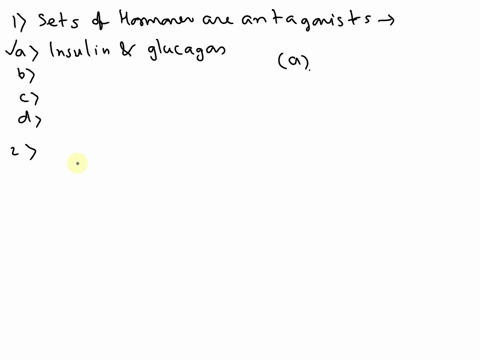 1> Sets of Hormones are antagonists →
✓a> Insulin & glucagas
(a).
b>
c>
d>
2>